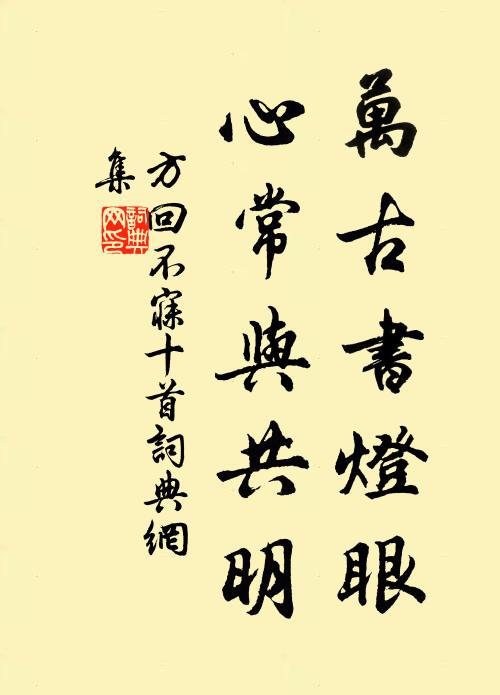 萬古書燈眼
心常與共明
方回不寐十首詞典網
集
詞典网印